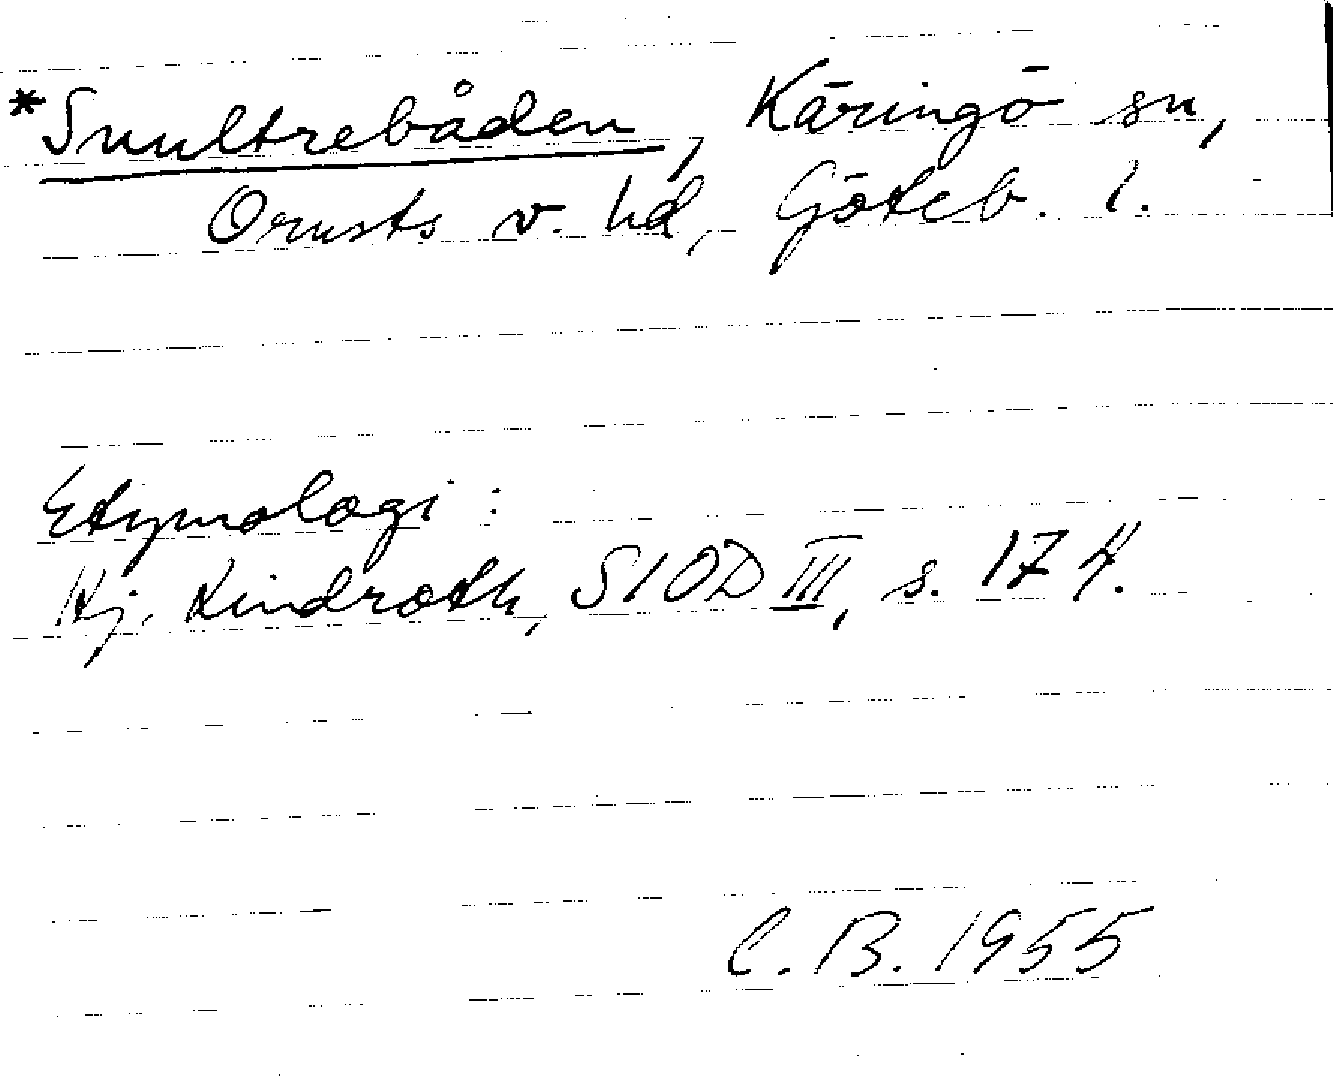 *Smultrebåden, Käringö sn,
Orusts v. hd, Göteb. l.
Etymologi:
Hj. Lindroth, SIOD III, s. 174.
C.B. 1955